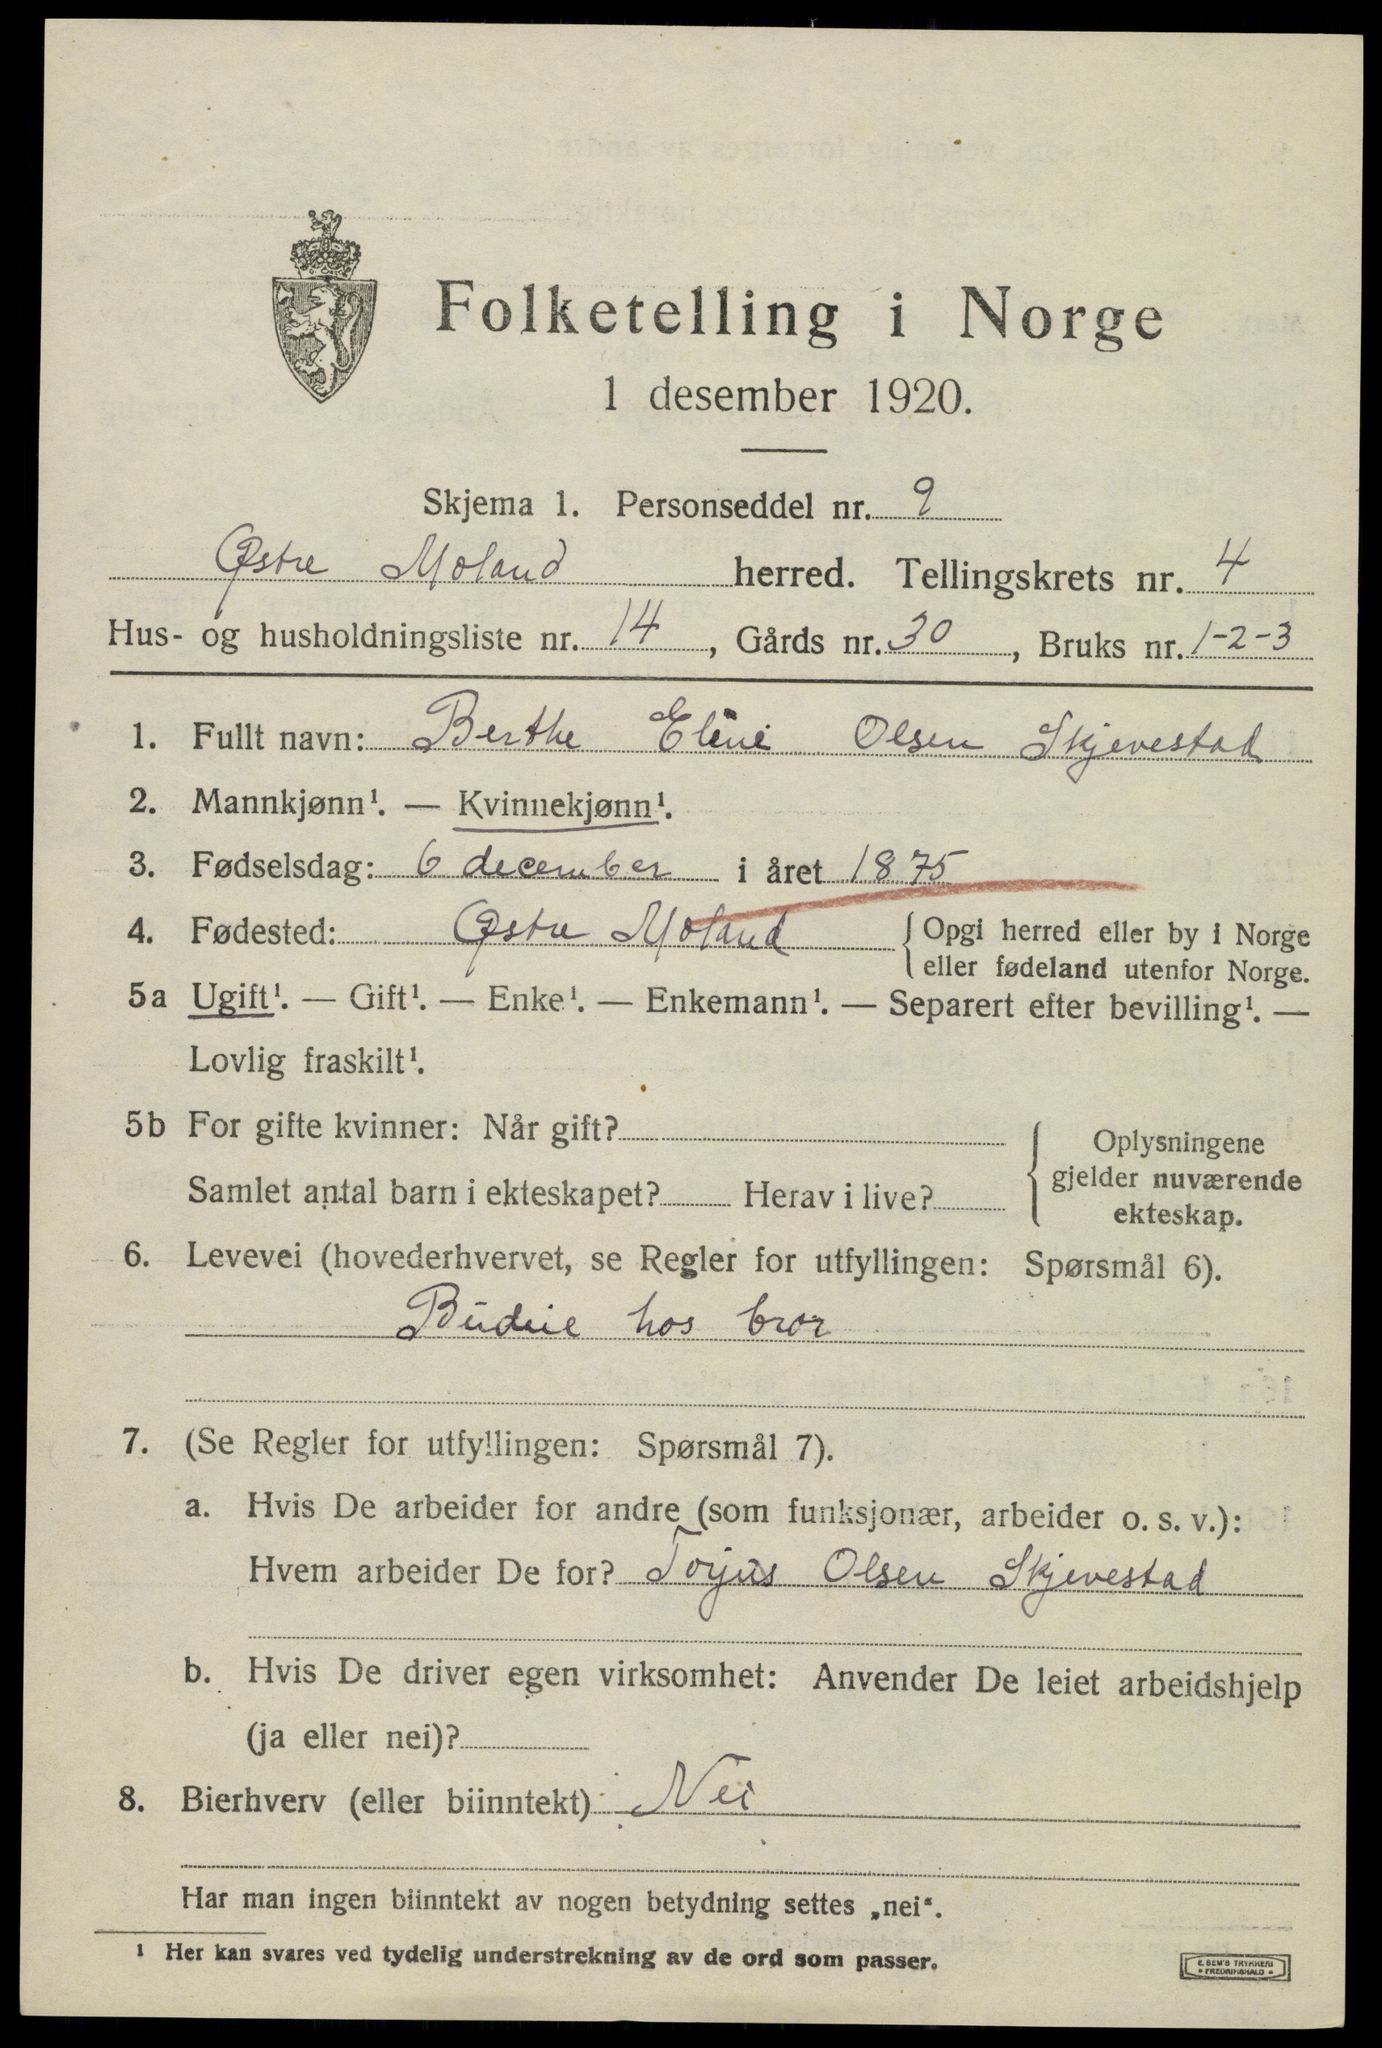 Folketelling i Norge
1 desember 1920.
Skjema 1. Personseddel nr. 9
Østre Moland herred. Tellingskrets nr. 4
Hus- og husholdningsliste nr. 14, Gårds nr. 30, Bruks nr. 1-2-3
1. Fullt navn: Berthe Eline Olsen Skjevestad
2. Mannkjønn¹. — Kvinnekjønn¹.
3. Fødselsdag: 6 december i året 1875
4. Fødested: Østre Moland { Opgi herred eller by i Norge
eller fødeland utenfor Norge.
5a Ugift¹. — Gift¹. — Enke¹. — Enkemann¹. — Separert efter bevilling¹. —
Lovlig fraskilt¹.
5b For gifte kvinner: Når gift?
Samlet antal barn i ekteskapet? Herav i live?
{ Oplysningene
gjelder nuværende
ekteskap.
6. Levevei (hovederhvervet, se Regler for utfyllingen: Spørsmål 6).
Budeie hos bror
7. (Se Regler for utfyllingen: Spørsmål 7).
a. Hvis De arbeider for andre (som funksjonær, arbeider o. s. v.):
Hvem arbeider De for? Torjus Olsen Skjevestad
b. Hvis De driver egen virksomhet: Anvender De leiet arbeidshjelp
(ja eller nei)?
8. Bierhverv (eller biinntekt) Nei
Har man ingen biinntekt av nogen betydning settes „nei“.
1 Her kan svares ved tydelig understrekning av de ord som passer.
E. SEM'S TRYKKERI
• FREDRIKSHALD •